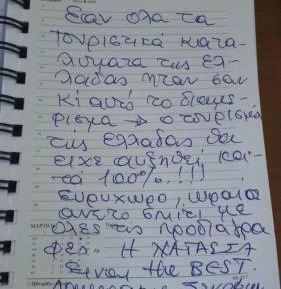 Εαν ολα τα
τουριστικά κατα-
λύματα της ελ-
λάδας ήταν σαν
κι αυτό το διαμέ-
ρισμα → ο τουρισμός
της ελλάδας θα
είχε αυξηθεί κα-
τά 100%!!!
ευρύχωρο, ωραία
άνετο σπίτι με
όλες τις προδιαγρα-
φές. Η ΧΑΤΑΣΣΑ
είναι the BEST.